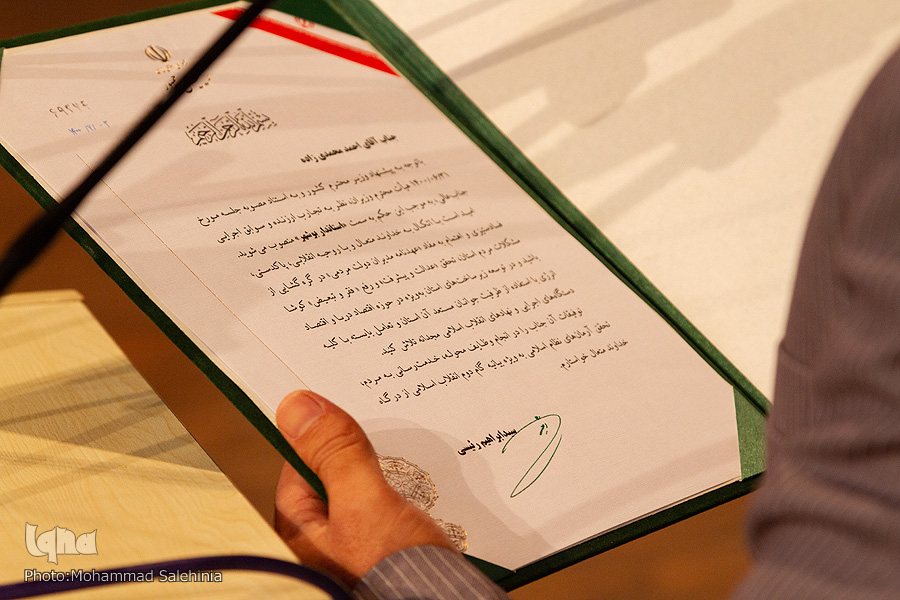 ۶۹۴۷۴
بسم الله الرحمن الرحیم
جناب آقای احمد محمدی زاده
باتوجه به پیشنهاد وزیر محترم کشور و به استناد مصوبه جلسه مورخ
۱۴۰۰/۰۶/۳۱ هیأت محترم وزیران، نظر به تجارب ارزنده و سوابق اجرایی
جناب‌عالی، به موجب این حکم به سمت «استاندار بوشهر» منصوب می‌شوید.
امید است با اتکال به خداوند متعال و با روحیه انقلابی، پاکدستی،
فسادستیزی و اهتمام به مفاد «عهدنامه مدیران دولت مردمی» در گره گشایی از
مشکلات مردم استان، تحقق «عدالت و پیشرفت» و رفع «فقر و تبعیض» کوشا
باشید و در توسعه زیرساخت‌های استان بویژه در حوزه اقتصاد دریا و اقتصاد
انرژی با استفاده از ظرفیت جوانان مستعد آن استان و تعامل بایسته با کلیه
دستگاه‌های اجرایی و نهادهای انقلاب اسلامی مجدانه تلاش کنید.
توفیقات آن جناب را در انجام وظایف محوله، خدمت‌رسانی به مردم،
تحقق آرمان‌های نظام اسلامی به ویژه بیانیه گام دوم انقلاب اسلامی از درگاه
خداوند متعال خواستارم.
سیدابراهیم رئیسی
Iqna
Photo:Mohammad Salehinia